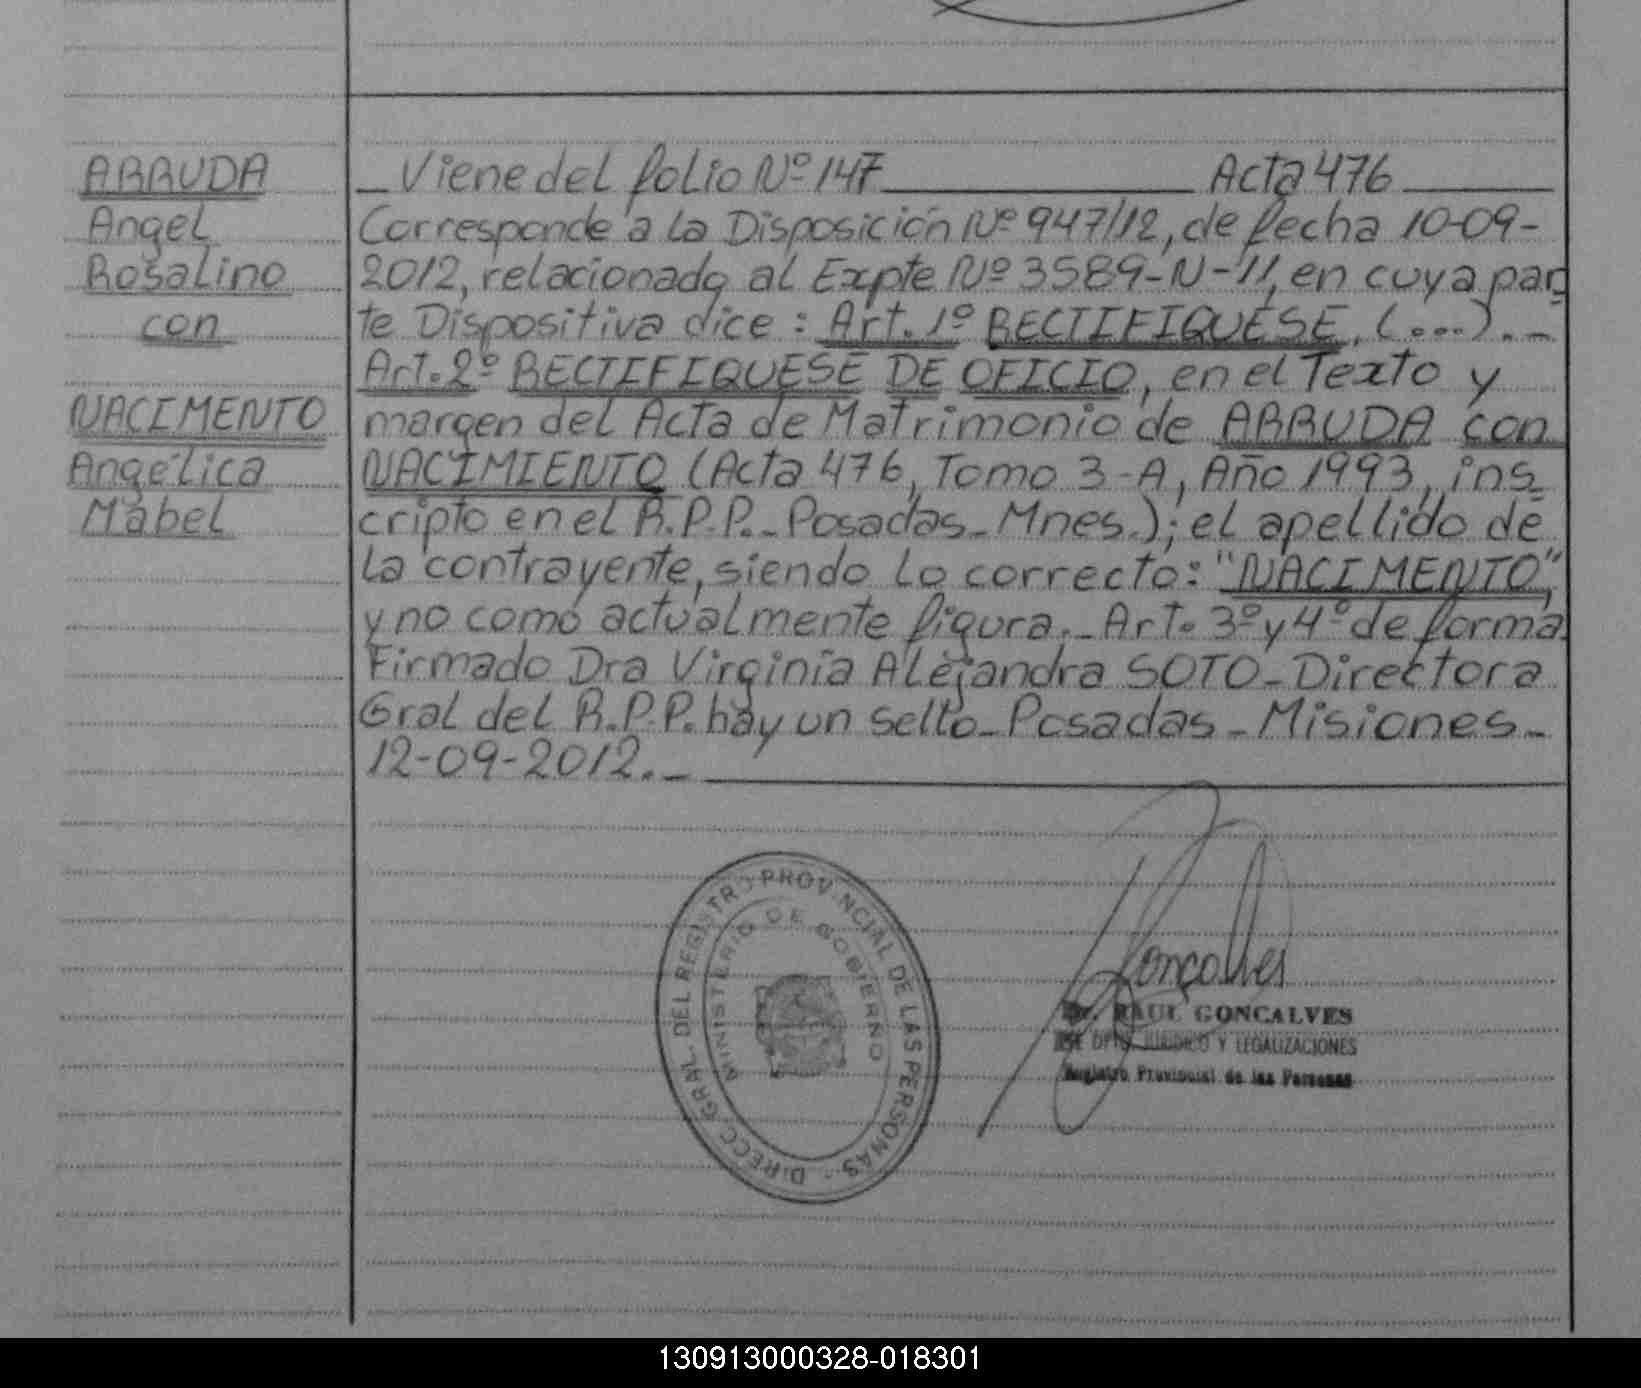 ARRUDA
Angel
Rosalino
con
NACIMENTO
Angélica
Mabel
_Viene del folio Nº 147 Acta 476
Corresponde a la Disposición Nº 947/12, de fecha 10-09-
2012, relacionado al Expte Nº 3589-N-11, en cuya par
te Dispositiva dice: Art. 1º RECTIFIQUESE, (...)._
Art. 2º RECTIFIQUESE DE OFICIO, en el Texto y
margen del Acta de Matrimonio de ARRUDA con
NACIMIENTO (Acta 476, Tomo 3-A, Año 1993, ins
cripto en el R.P.P._Posadas_Mnes.); el apellido de
la contrayente, siendo lo correcto: "NACIMENTO",
y no como actualmente figura._Art. 3º y 4º de forma
Firmado Dra Virginia Alejandra SOTO_Directora
Gral del R.P.P. hay un sello_Posadas_Misiones_
12-09-2012._
DIRECC. GRAL. DEL REGISTRO PROVINCIAL DE LAS PERSONAS
MINISTERIO DE GOBIERNO
Gonçalves
Dr. RAUL GONCALVES
DPTO JURIDICO Y LEGALIZACIONES
Registro Provincial de las Personas
130913000328-018301